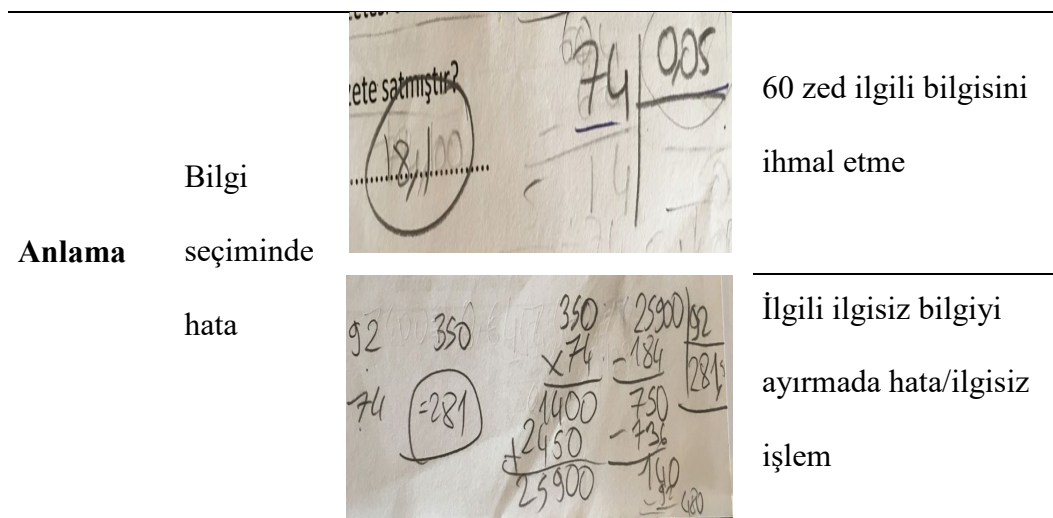 Anlama
Bilgi
seçiminde
hata
ete satmıştır?
18,100
74 0,05
14
60 zed ilgili bilgisini
ihmal etme
92 350
74 =281
350
x74
1400
+2450
25900
25900 92
-184 281,
750
-736
140
İlgili ilgisiz bilgiyi
ayırmada hata/ilgisiz
işlem